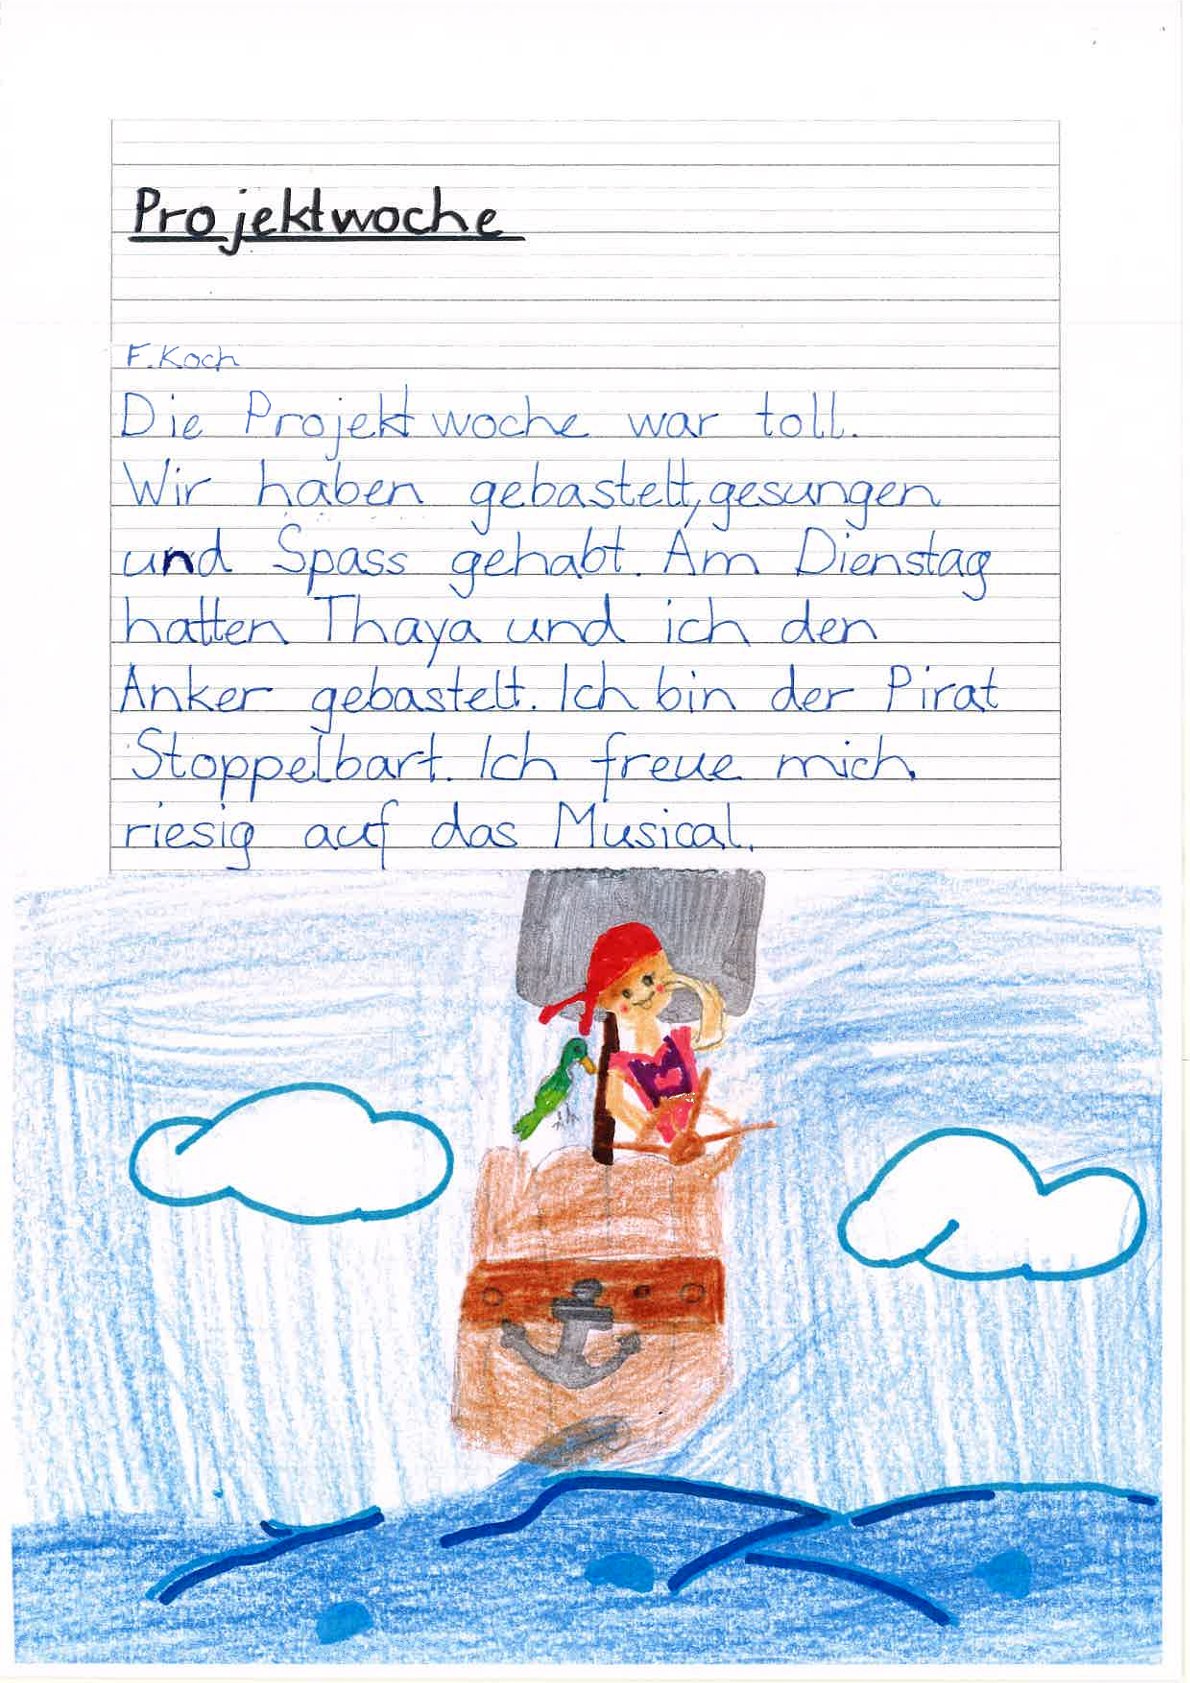 Projektwoche
F. Koch
Die Projektwoche war toll.
Wir haben gebastelt, gesungen
und Spass gehabt. Am Dienstag
hatten Thaya und ich den
Anker gebastelt. Ich bin der Pirat
Stoppelbart. Ich freue mich
riesig auf das Musical.